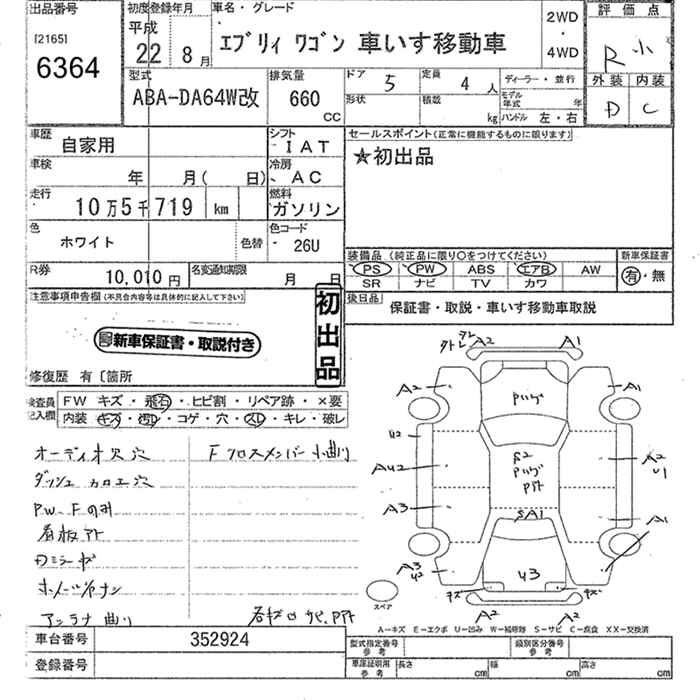 出品番号
[2165]
6364
初度登録年月
平成
22 8月
車名・グレード
エブリィ ワゴン 車いす移動車
2WD
・
4WD
評価点
R 小
外装 内装
D C
型式
ABA-DA64W改
排気量
660
CC
ドア
5
定員
4人
ディーラー・並行
形状
積載
kg
モデル年式 年
ハンドル 左・右
車歴
自家用
シフト
IAT
車検
年 月( 日)
冷房
AC
走行
10万5千719 km
燃料
ガソリン
色
ホワイト
色替
色コード
26U
R券
10,010円
名変通知期限
月 日
セールスポイント(正常に機能するものに限ります)
★初出品
装備品(純正品に限り○をつけてください)
PS PW ABS エアB AW
SR ナビ TV カワ
新車保証書
有・無
後日品
保証書・取説・車いす移動車取説
注意事項申告欄(不具合内容等は具体的に記入して下さい)
初出品
新車保証書・取説付き
修復歴 有〔箇所
検査員記入欄
FW キズ・飛石・ヒビ割・リペア跡・×要
内装 キズ・汚レ・コゲ・穴・スレ・キレ・破レ
オーディオ欠 穴
Fクロスメンバー小曲り
ダッシュ カロエ穴
PW、Fのみ
看板アト
アンテナ曲り
A2 A1
A2 A1
U2
AU2
A2
U1
A3
SA1
A1
A3
U2
U3
キズ キズ
A2 A2
スペア
A-キズ E-エクボ U-凹み W-補修跡 S-サビ C-腐食 XX-交換済
車台番号
352924
登録番号
型式指定番号
参考
類別区分番号
参考
車庫証明用
参考
長さ cm 幅 cm 高さ cm